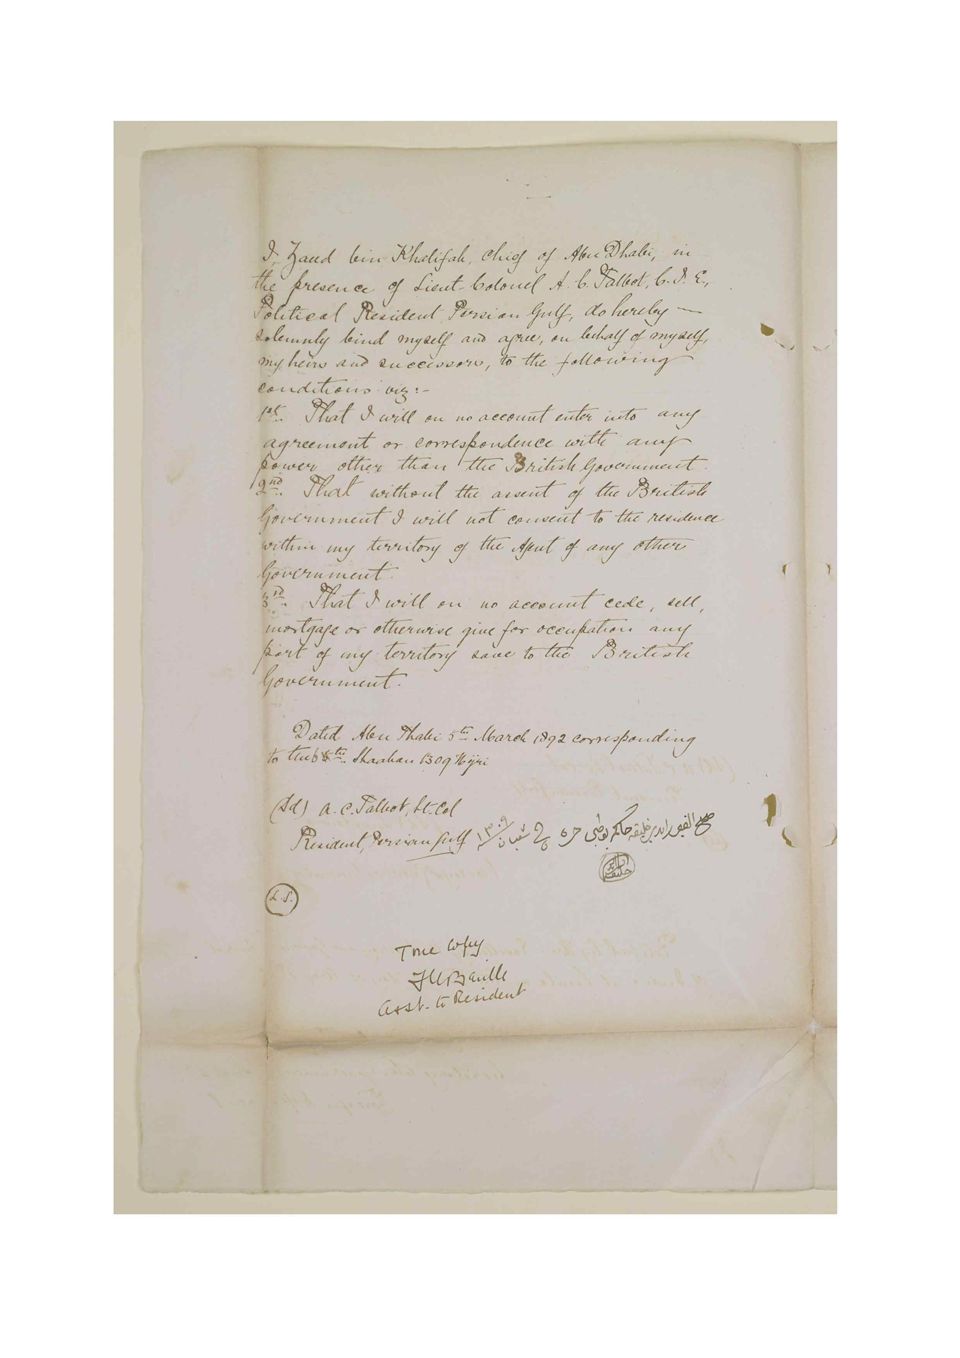 I, Zaud bin Khalifah, Chief of Abu Dhabi, in
the presence of Lieut. Colonel A. C. Talbot, C. I. E.,
Political Resident Persian Gulf, do hereby —
solemnly bind myself and agree, on behalf of myself,
my heirs and successors, to the following
conditions viz:-
1st. That I will on no account enter into any
agreement or correspondence with any
power other than the British Government.
2nd. That without the assent of the British
Government I will not consent to the residence
within my territory of the Agent of any other
Government.
3rd. That I will on no account cede, sell,
mortgage or otherwise give for occupation any
part of my territory save to the British
Government.
Dated Abu Dhabi 5th March 1892 corresponding
to the 5th Shaaban 1309 Hijri
(Sd) A. C. Talbot, Lt. Col
Resident, Persian Gulf
زايد بن خليفة حاكم بوظبي حرره شعبان ١٣٠٩
L.S.
True Copy
Asst. to Resident